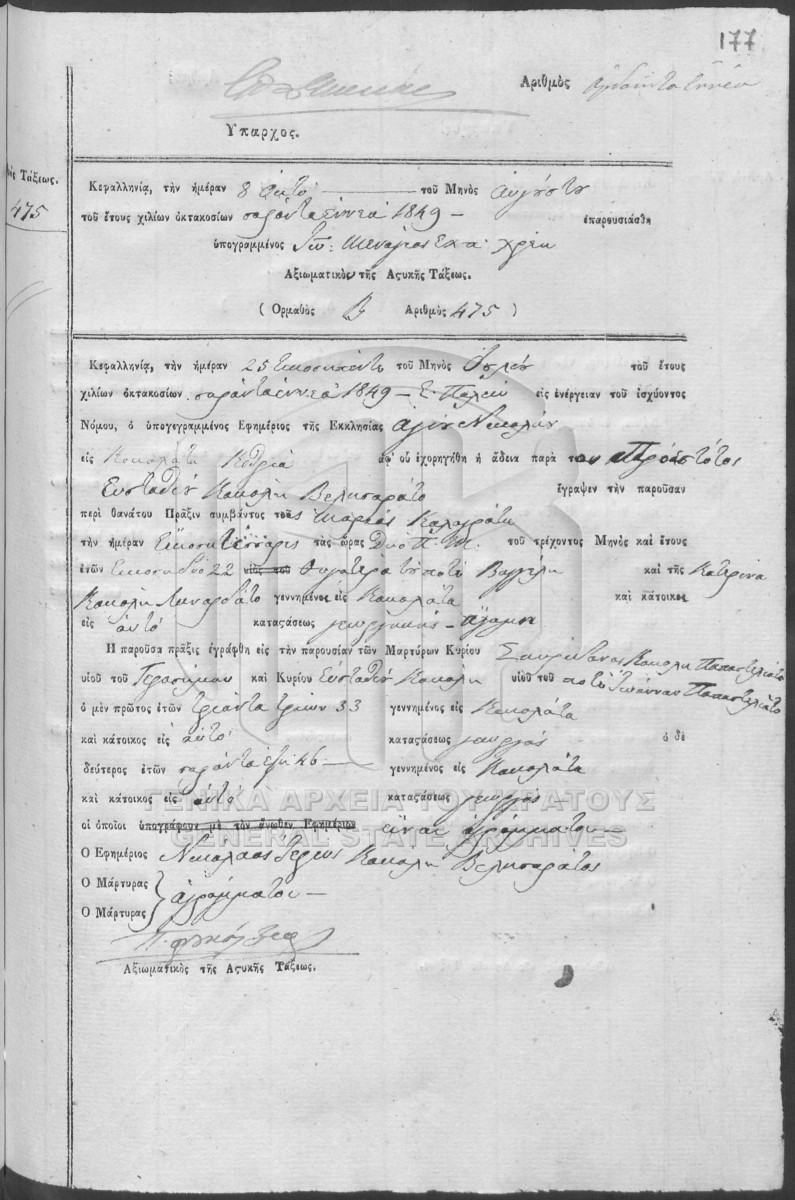 177
Αριθμὸς ὀγδοήντα ἐννέα
Υπαρχος.
Τάξεως.
475
Κεφαλληνίᾳ, τὴν ἡμέραν 8 ὀκτὸ τοῦ Μηνὸς αὐγούστου
τοῦ ἔτους χιλίων ὀκτακοσίων σαράντα ἐννεά 1849 – ἐπαρουσιάσθη
ὑπογραμμένος
Αξιωματικὸς τῆς Αςυκῆς Τάξεως.
( Ορμαθὸς β Αριθμὸς 475 )
Κεφαλληνίᾳ, τὴν ἡμέραν 25 εικοσιπέντε τοῦ Μηνὸς τοῦ ἔτους
χιλίων ὀκτακοσίων σαράντα ἐννεά 1849 – Ε. Παλαιόν εἰς ἐνέργειαν τοῦ ἰσχύοντος
Νόμου, ὁ ὑπογεγραμμένος Εφημέριος τῆς Εκκλησίας ἁγίου Νικολάου
εἰς Κοκολάτα ἀφ' οὗ ἐχορηγήθη ἡ ἄδεια παρὰ του Προεστότος
Ευσταθίου Κοκόλη Βελησαράτο ἔγραψεν τὴν παροῦσαν
περὶ θανάτου Πράξιν συμβάντος τῆς Μαρίας
τὴν ἡμέραν Εἴκοσι τέσσαρες τὰς ὥρας Δύο Π. Μ. τοῦ τρέχοντος Μηνὸς καὶ ἔτους
ἐτῶν εικοσιδύο 22 υἱὸς τοῦ θυγατέρα τοῦ ποτέ Βαγγέλη καὶ τῆς Κατερίνα
Κοκόλη γεννημένος εἰς Κοκολάτα καὶ κάτοικος
εἰς αὐτό καταςάσεως γεωργικῆς – ἄγαμη
Η παροῦσα πρᾶξις ἐγράφθη εἰς τὴν παρουσίαν τῶν Μαρτύρων Κυρίου Σπυρίδωνος Κοκόλη Παπαστελιάτο
υἱοῦ τοῦ Γερασίμου καὶ Κυρίου Εὐσταθίου Κοκόλη υἱοῦ τοῦ ποτέ Ἰωάννου Παπαστελιάτο
ὁ μὲν πρῶτος ἐτῶν τριάντα τριῶν 33 γεννημένος εἰς Κοκολάτα
καὶ κάτοικος εἰς αὐτό καταςάσεως γεωργός ὁ δὲ
δεύτερος ἐτῶν σαράντα ἕξη 46 – γεννημένος εἰς Κοκολάτα
καὶ κάτοικος εἰς αὐτό καταςάσεως γεωργός
οἱ ὁποῖοι ὑπογράφουσι μὲ τὸν ἄνωθεν Εφημέριον εἶναι ἀγράμματοι –
Ο Εφημέριος Νικόλαος Ἱερεύς Κοκόλη Βελησαράτος
Ο Μάρτυρας
ἀγράμματοι –
Ο Μάρτυρας
Αξιωματικὸς τῆς Αςυκῆς Τάξεως.
ΓΕΝΙΚΑ ΑΡΧΕΙΑ ΤΟΥ ΚΡΑΤΟΥΣ
GENERAL STATE ARCHIVES